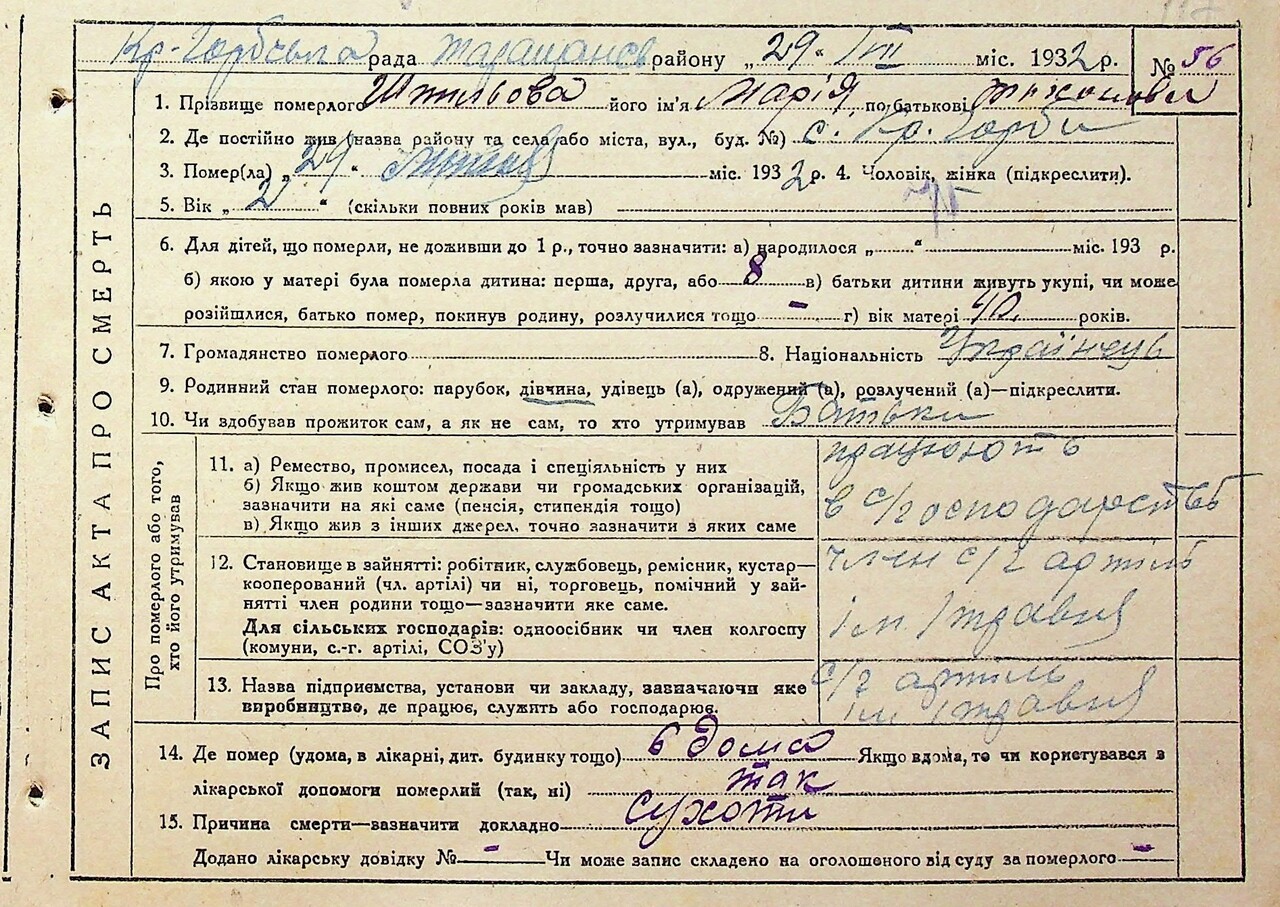 117
Кр-Горбська рада район у „29“ VII міс. 1932 р. № 56
1. Прізвище померлого Штильова його ім'я Марія по батькові Тихонови
2. Де постійно жив (назва району та села або міста, вул., буд. №) с. Кр. Горби
3. Помер(ла) „29“ міс. 1932 р. 4. Чоловік, жінка (підкреслити).
5. Вік „2“ (скільки повних років мав)
6. Для дітей, що померли, не доживши до 1 р., точно зазначити: а) народилося „ “ міс. 193 р.
б) якою у матері була померла дитина: перша, друга, або 8 в) батьки дитини живуть укупі, чи може
розійшлися, батько помер, покинув родину, розлучилися тощо – г) вік матері 40 років.
7. Громадянство померлого 8. Національність Українець
9. Родинний стан померлого: парубок, дівчина, удівець (а), одружений (а), розлучений (а)—підкреслити.
10. Чи здобував прожиток сам, а як не сам, то хто утримував Батьки
ЗАПИС АКТА ПРО СМЕРТЬ
Про померлого або того,
хто його утримував
11. а) Ремество, промисел, посада і спеціяльність у них
б) Якщо жив коштом держави чи громадських організацій,
зазначити на які саме (пенсія, стипендія тощо)
в) Якщо жив з інших джерел, точно зазначити з яких саме
працюють
в с/господарстві
12. Становище в зайнятті: робітник, службовець, ремісник, кустар—
кооперований (чл. артілі) чи ні, торговець, помічний у зай-
нятті член родини тощо—зазначити яке саме.
Для сільських господарів: одноосібник чи член колгоспу
(комуни, с.-г. артілі, СОЗ'у)
член с/г артіль
ім 1 травня
13. Назва підприємства, установи чи закладу, зазначаючи яке
виробництво, де працює, служить або господарює.
с/г артиль
ім 1 травня
14. Де помер (удома, в лікарні, дит. будинку тощо) в дома Якщо вдома, то чи користувався з
лікарської допомоги померлий (так, ні) так
15. Причина смерти—зазначити докладно сухоти
Додано лікарську довідку № – Чи може запис складено на оголошеного від суду за померлого –